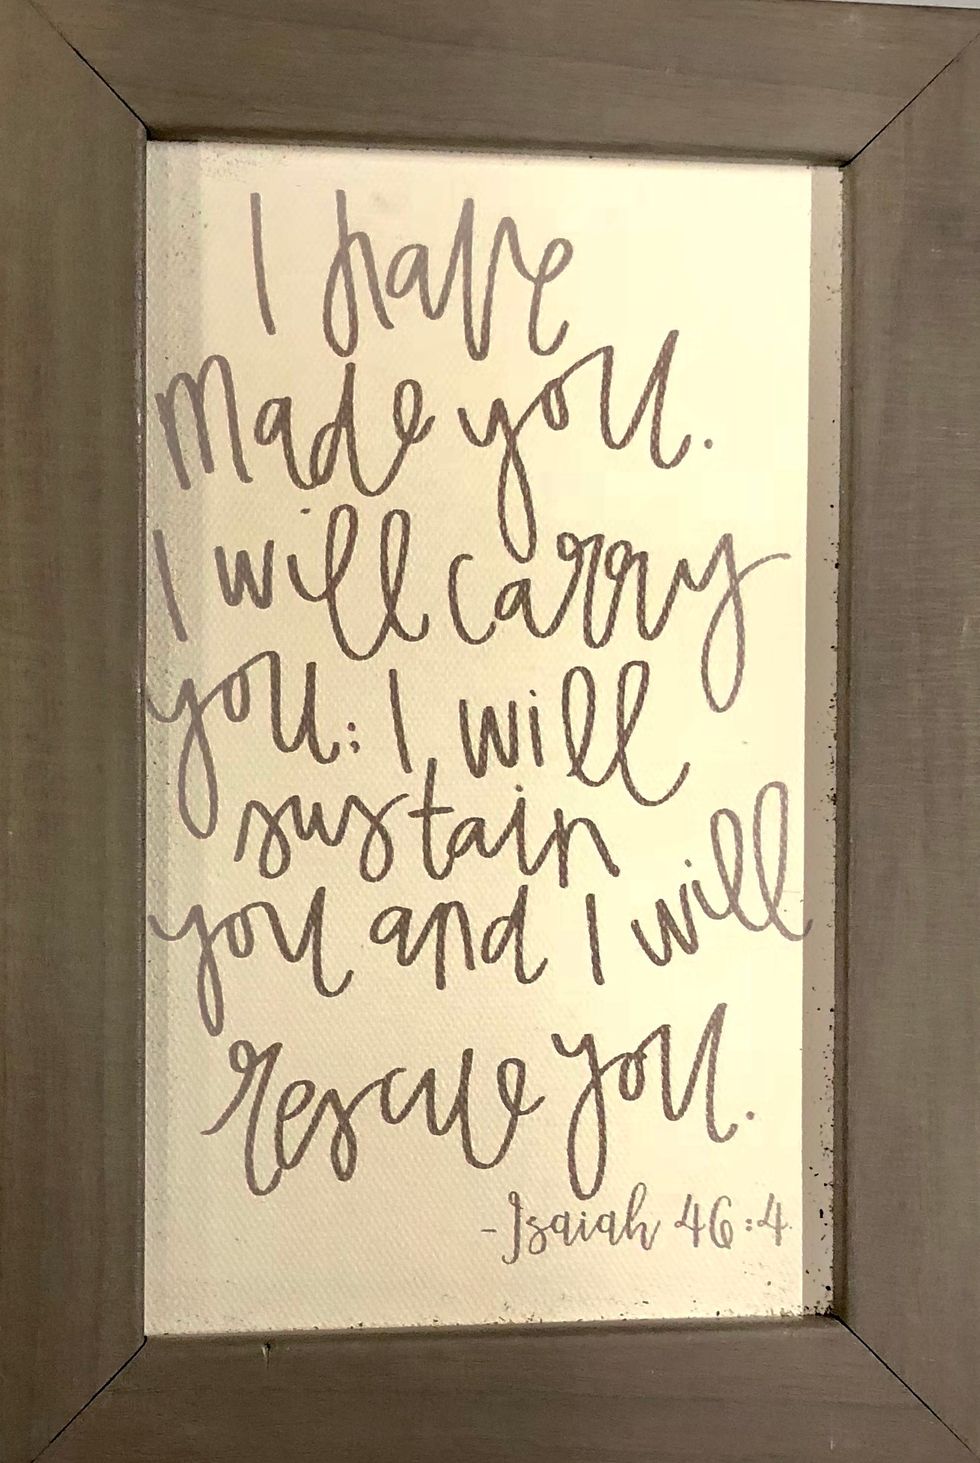 I have
Made you.
I will carry
you: I will
sustain
you and I will
rescue you.
-Isaiah 46:4